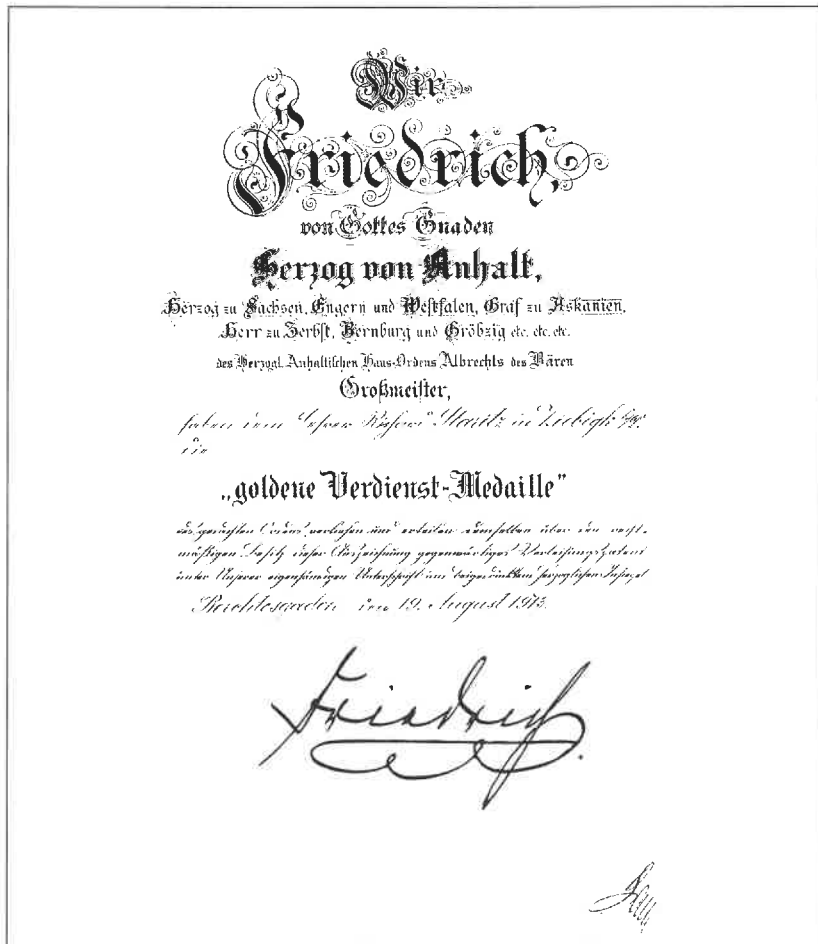 Wir
Friedrich,
von Gottes Gnaden
Herzog von Anhalt,
Herzog zu Sachsen, Engern und Westfalen, Graf zu Askanien,
Herr zu Zerbst, Bernburg und Gröbzig etc. etc. etc.
des Herzogl. Anhaltischen Haus-Ordens Albrechts des Bären
Großmeister,
haben dem Lehrer Richard in
die
„goldene Verdienst-Medaille"
des gedachten Ordens verliehen und erteilen demselben über den recht-
mäßigen Besitz dieser Auszeichnung gegenwärtiges Verleihungspatent
unter Unserer eigenhändigen Unterschrift und beigedrucktem herzoglichen Insiegel
Berchtesgaden den 19. August 1913.
Friedrich